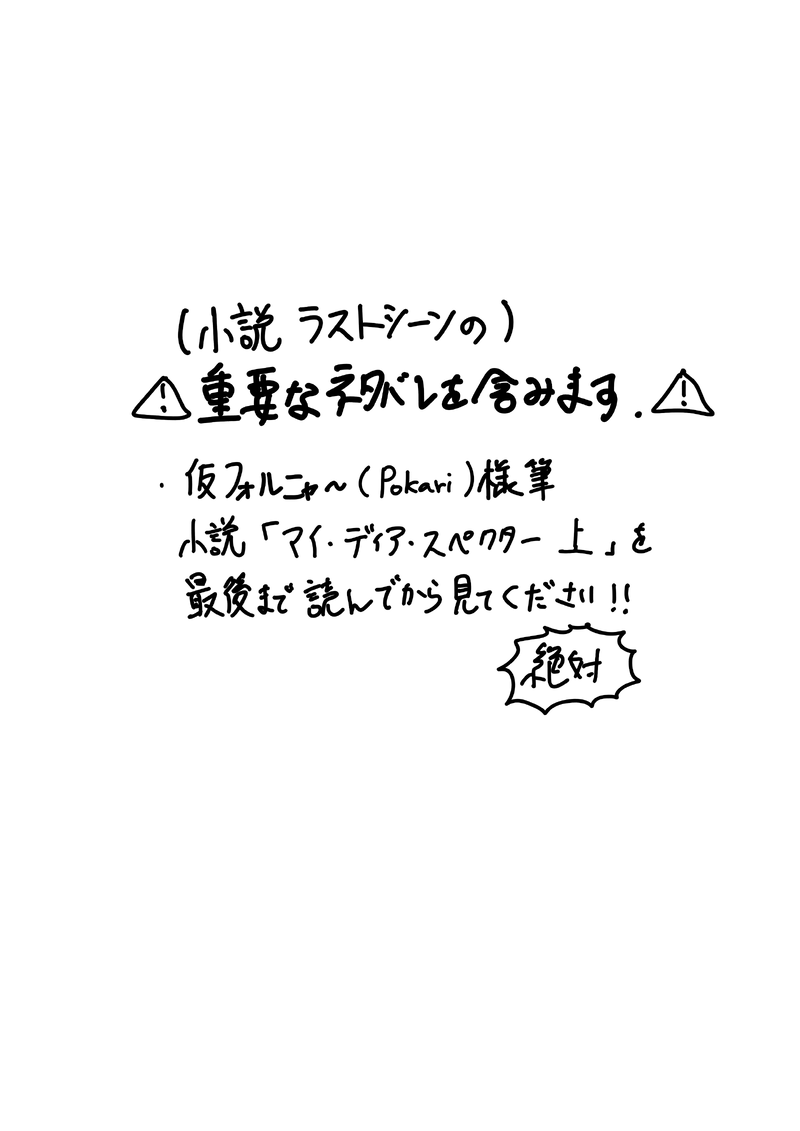 (小説 ラストシーンの)
⚠重要なネタバレを含みます.⚠
・仮フォルニャ~(Pokari)様筆
小説「マイ・ディア・スペクター 上」を
最後まで読んでから見てください!!
絶対